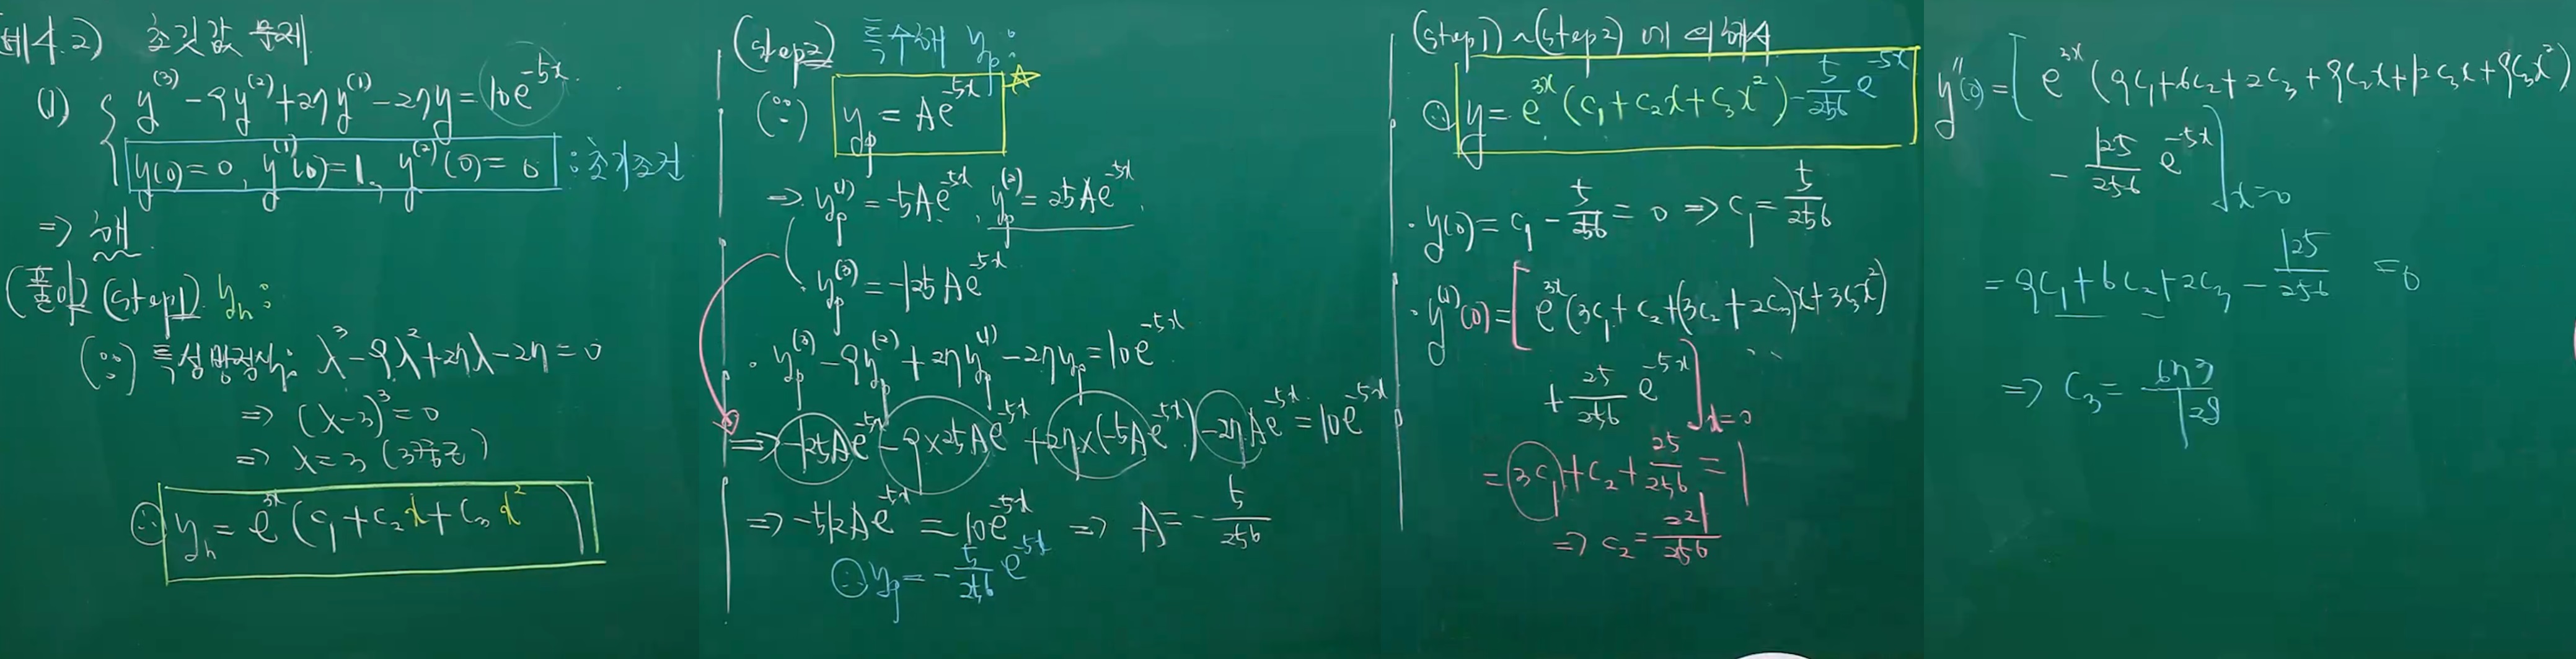 예4.2) 초깃값 문제
(1) { y^(3) - 9y^(2) + 27y^(1) - 27y = 10e^{-5x}
y(0) = 0, y^(1)(0) = 1, y^(2)(0) = 0 : 초기조건
⇒ 해
(풀이) (step1) y_h :
(∵) 특성방정식: λ^3 - 9λ^2 + 27λ - 27 = 0
⇒ (λ-3)^3 = 0
⇒ λ = 3 (3중근)
∴ y_h = e^{3x} (c_1 + c_2 x + c_3 x^2)
(step2) 특수해 y_p :
(∵) y_p = Ae^{-5x} ☆
⇒ y_p^(1) = -5Ae^{-5x}, y_p^(2) = 25Ae^{-5x}
y_p^(3) = -125Ae^{-5x}
· y_p^(3) - 9y_p^(2) + 27y_p^(1) - 27y_p = 10e^{-5x}
⇒ -125Ae^{-5x} - 9×25Ae^{-5x} + 27×(-5Ae^{-5x}) - 27Ae^{-5x} = 10e^{-5x}
⇒ -512Ae^{-5x} = 10e^{-5x} ⇒ A = -5/256
∴ y_p = -5/256 e^{-5x}
(step1)~(step2)에 의해서
∴ y = e^{3x} (c_1 + c_2 x + c_3 x^2) - 5/256 e^{-5x}
· y(0) = c_1 - 5/256 = 0 ⇒ c_1 = 5/256
· y^(1)(0) = [ e^{3x} (3c_1 + c_2 + (3c_2 + 2c_3)x + 3c_3 x^2)
+ 25/256 e^{-5x} ]_{x=0}
= 3c_1 + c_2 + 25/256 = 1
⇒ c_2 = 221/256
y''(0) = [ e^{3x} (9c_1 + 6c_2 + 2c_3 + 9c_2 x + 12c_3 x + 9c_3 x^2)
- 125/256 e^{-5x} ]_{x=0}
= 9c_1 + 6c_2 + 2c_3 - 125/256 = 0
⇒ c_3 =